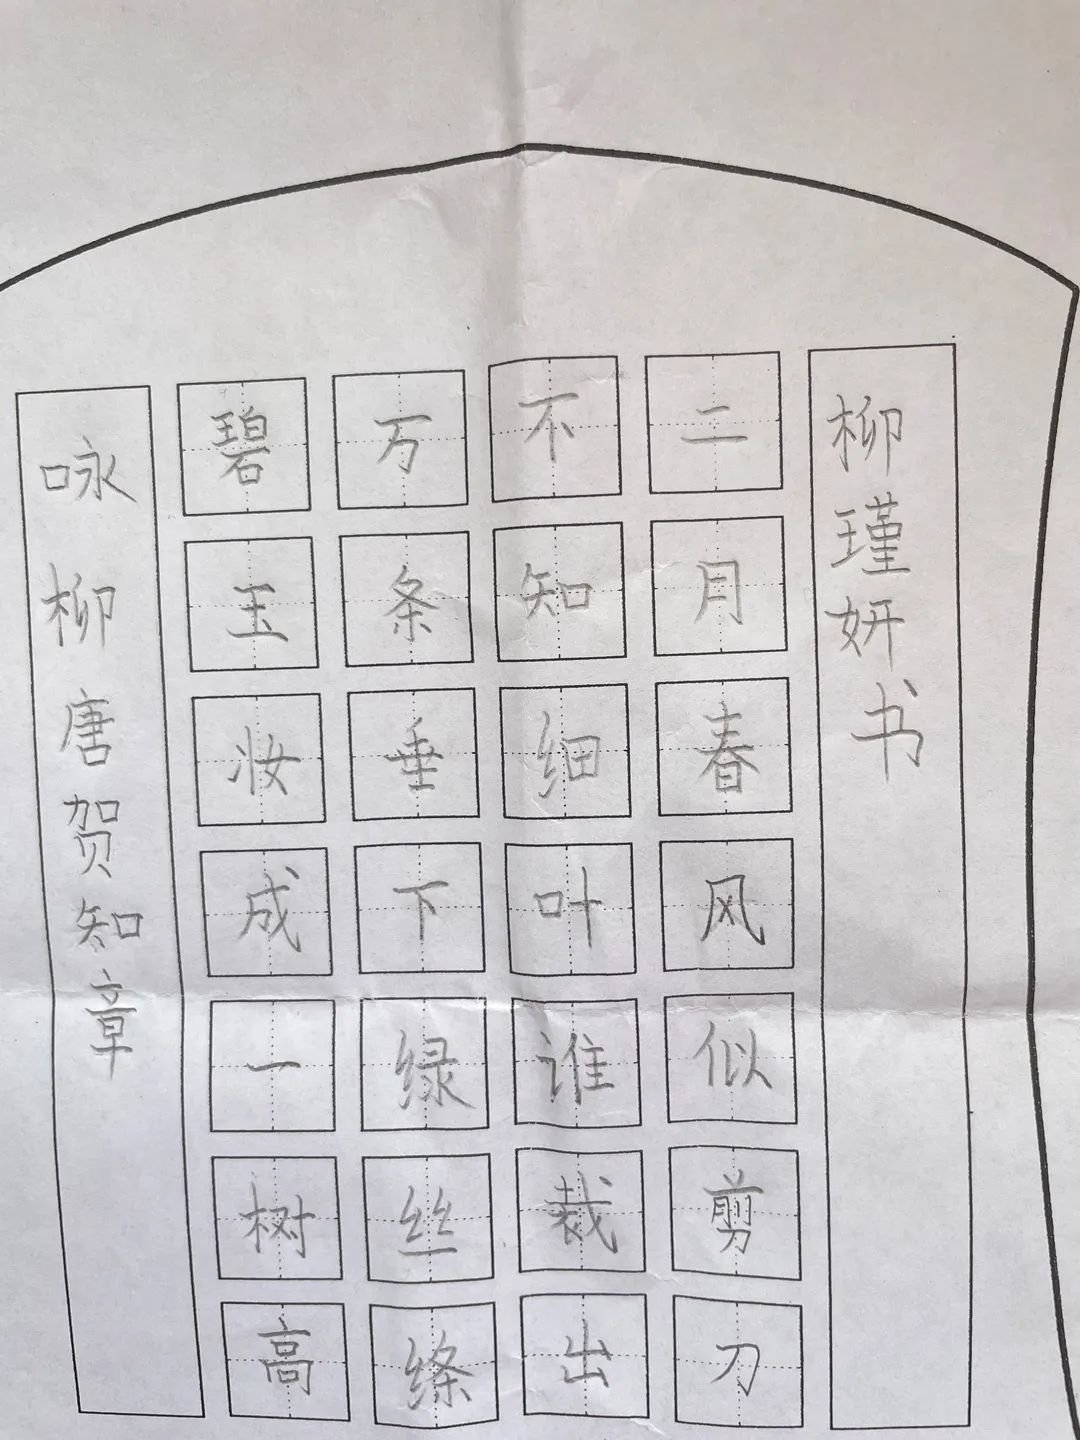 咏柳唐贺知章
碧玉妆成一树高
万条垂下绿丝绦
不知细叶谁裁出
二月春风似剪刀
柳瑾妍书